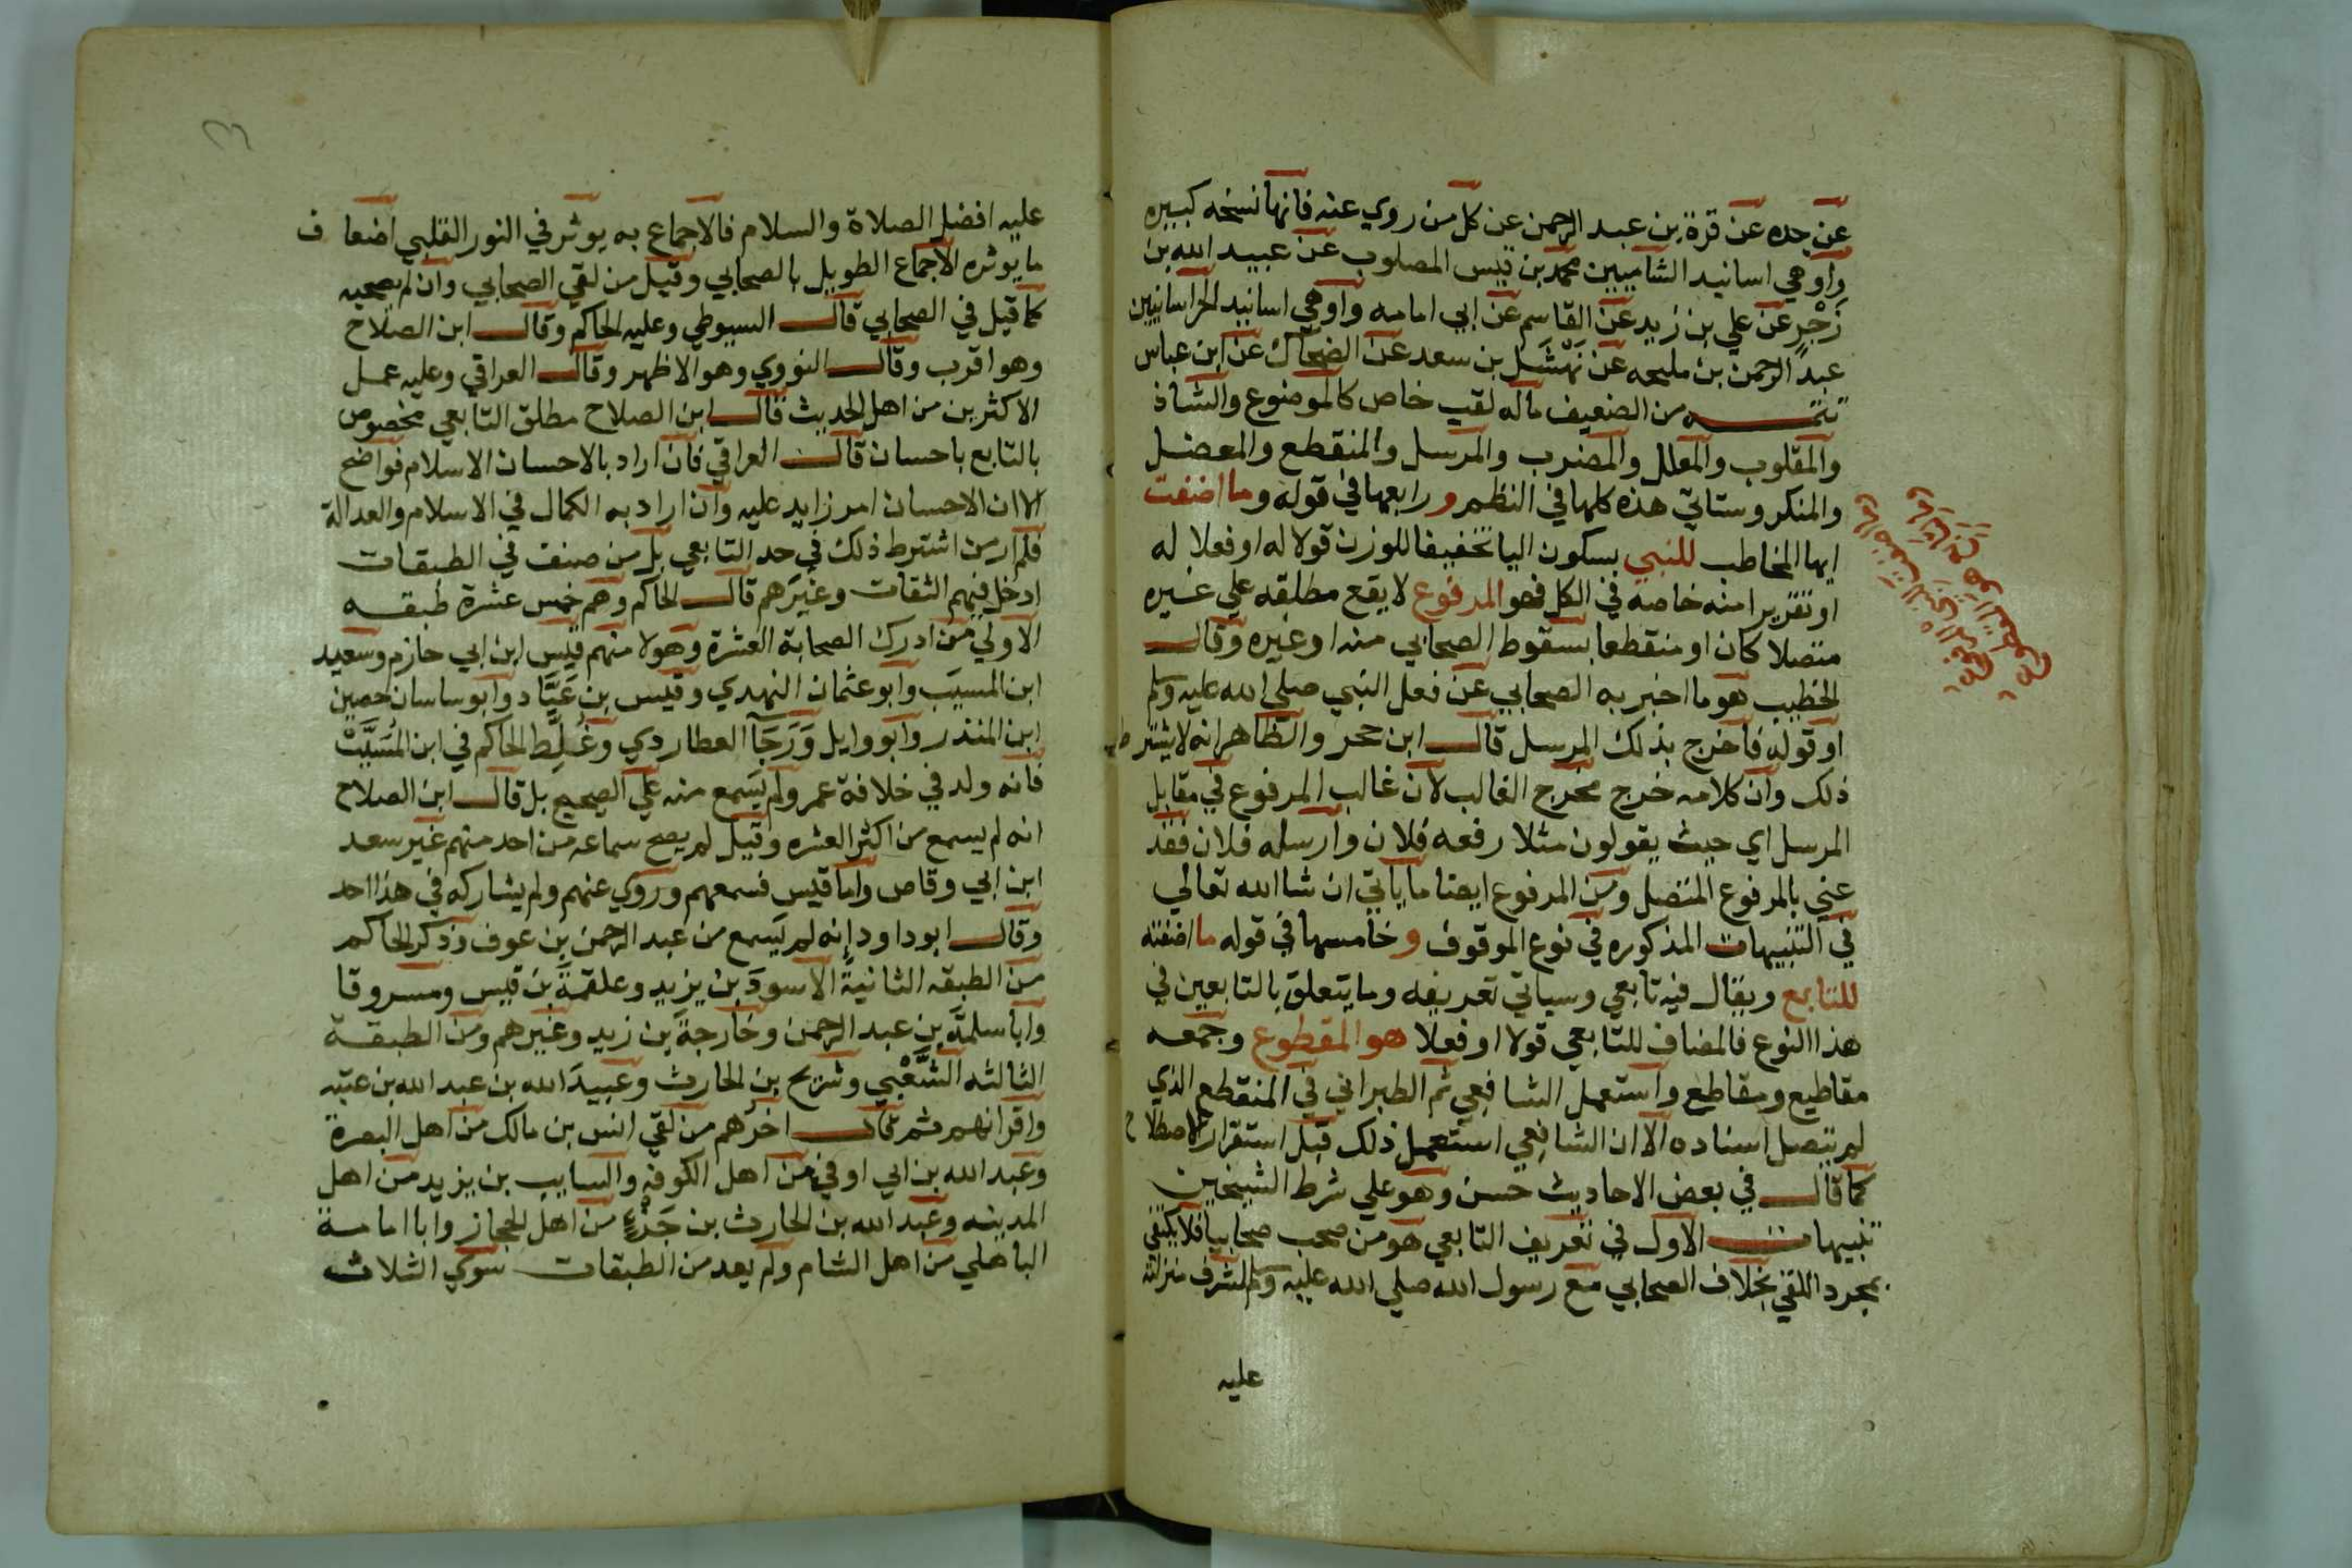 عن جده عن قرة بن عبد الرحمن عن كل من روي عنه فانها نسخه كبيره
واوهي اسانيد الشاميين محمد بن قيس المصلوب عن عبيد الله بن
زَحْرٍ عن علي بن زيد عن القاسم عن ابي امامه واوهي اسانيد الخراسانيين
عبد الرحمن بن مليحه عن نَهْشَل بن سعد عن الضحاك عن ابن عباس
تتمـــه من الضعيف ماله لقب خاص كالموضوع والشاذ
والمقلوب والمعلل والمضرب والمرسل والمنقطع والمعضل
والمنكر وستاتي هذه كلها في النظم ورابعها في قوله وما اضفت
ايها المخاطب للنبي بسكون اليا تخفيفا للوزن قولا له او فعلا له
او تقريرا منه خاصه في الكل فهو المرفوع لا يقع مطلقه علي غيره
متصلا كان او منقطعا بسقوط الصحابي منه او غيره وقال
الخطيب هو ما اخبر به الصحابي عن فعل النبي صلي الله عليه وسلم
او قوله فاخرج بذلك المرسل قال ابن حجر والظاهر انه لا يشترط
ذلك وان كلامه خرج مخرج الغالب لان غالب المرفوع في مقابل
المرسل اي حيث يقولون مثلا رفعه فلان وارسله فلان فقد
عني بالمرفوع المتصل ومن المرفوع ايضا ما ياتي ان شا الله تعالي
في التنبيهات المذكوره في نوع الموقوف وخامسها في قوله ما اضفته
للتابع ويقال فيه تابعي وسياتي تعريفه وما يتعلق بالتابعين في
هذا النوع فالمضاف للتابعي قولا او فعلا هو المقطوع وجمعه
مقاطيع ومقاطع واستعمل الشافعي ثم الطبراني في المنقطع الذي
لم يتصل اسناده الا ان الشافعي استعمل ذلك قبل استقرار الاصطلاح
كما قال في بعض الاحاديث حسن وهو علي شرط الشيخين
تنبيهات الاول في تعريف التابعي هو من صحب صحابيا فلا يكفي
بمجرد اللقي بخلاف الصحابي مع رسول الله صلي الله عليه وسلم لشرف منزلته
عليه
عليه افضل الصلاة والسلام فالاجماع به يوثر في النور القلبي اضعاف
ما يوثره الاجماع الطويل بالصحابي وقيل من لقي الصحابي وان لم يصحبه
كما قيل في الصحابي قال السيوطي وعليه الحاكم وقال ابن الصلاح
وهو اقرب وقال النووي وهو الاظهر وقال العراقي وعليه عمل
الاكثرين من اهل الحديث قال ابن الصلاح مطلق التابعي مخصوص
بالتابع باحسان قال العراقي فان اراد بالاحسان الاسلام فواضح
الا ان الاحسان امر زايد عليه وان اراد به الكمال في الاسلام والعدالة
فلم ار من اشترط ذلك في حد التابعي بل من صنف في الطبقات
ادخل فيهم الثقات وغيرهم قال الحاكم وهم خمس عشرة طبقه
الاولي من ادرك الصحابة العشرة وهولا منهم قيس ابن ابي حازم وسعيد
ابن المسيب وابو عثمان النهدي وقيس بن عَبَّاد وابو ساسان حصين
ابن المنذر وابو وايل وَرَجَآ العطاردي وغُلِّط الحاكم في ابن المُسَيَّبْ
فانه ولد في خلافة عمر ولم يسمع منه علي الصحيح بل قال ابن الصلاح
انه لم يسمع من اكثر العشره وقيل لم يصح سماعه من احد منهم غير سعد
ابن ابي وقاص واما قيس فسمعهم وروي عنهم ولم يشاركه في هذا احد
وقال ابو داود إنه لم يَسمع من عبد الرحمن بن عوف وذكر الحاكم
من الطبقه الثانية الاسودَ بن يزيد وعلقمةَ بن قيس ومسروقا
وابا سلمةَ بن عبد الرحمن وخارجةَ بن زيد وغيرهم ومن الطبقة
الثالثه الشَّعْبِي وشريح بن الحارث وعبيدَ الله بن عبد الله بن عتبه
واقرانهم ثم قال اخرهم من لقي انس بن مالك من اهل البصرة
وعبد الله بن ابي اوفي من اهل الكوفه والسايب بن يزيد من اهل
المدينه وعبد الله بن الحارث بن جَزْءٍ من اهل الحجاز وابا امامة
الباهلي من اهل الشام ولم يعد من الطبقات سوي الثلاث